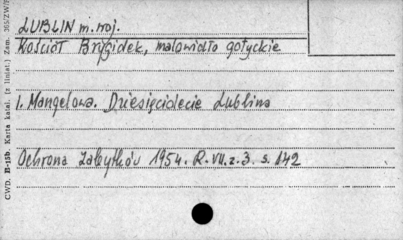 LUBLIN m. woj.
Kościół Brygidek, malowidło gotyckie
I. Mangelowa. Dziesięciolecie Lublina
Ochrona Zabytków 1954. R. VII. z. 3. s. 142
CWD. B-15b. Karta katal. (z liniat.) Zam. 365/ZW/7